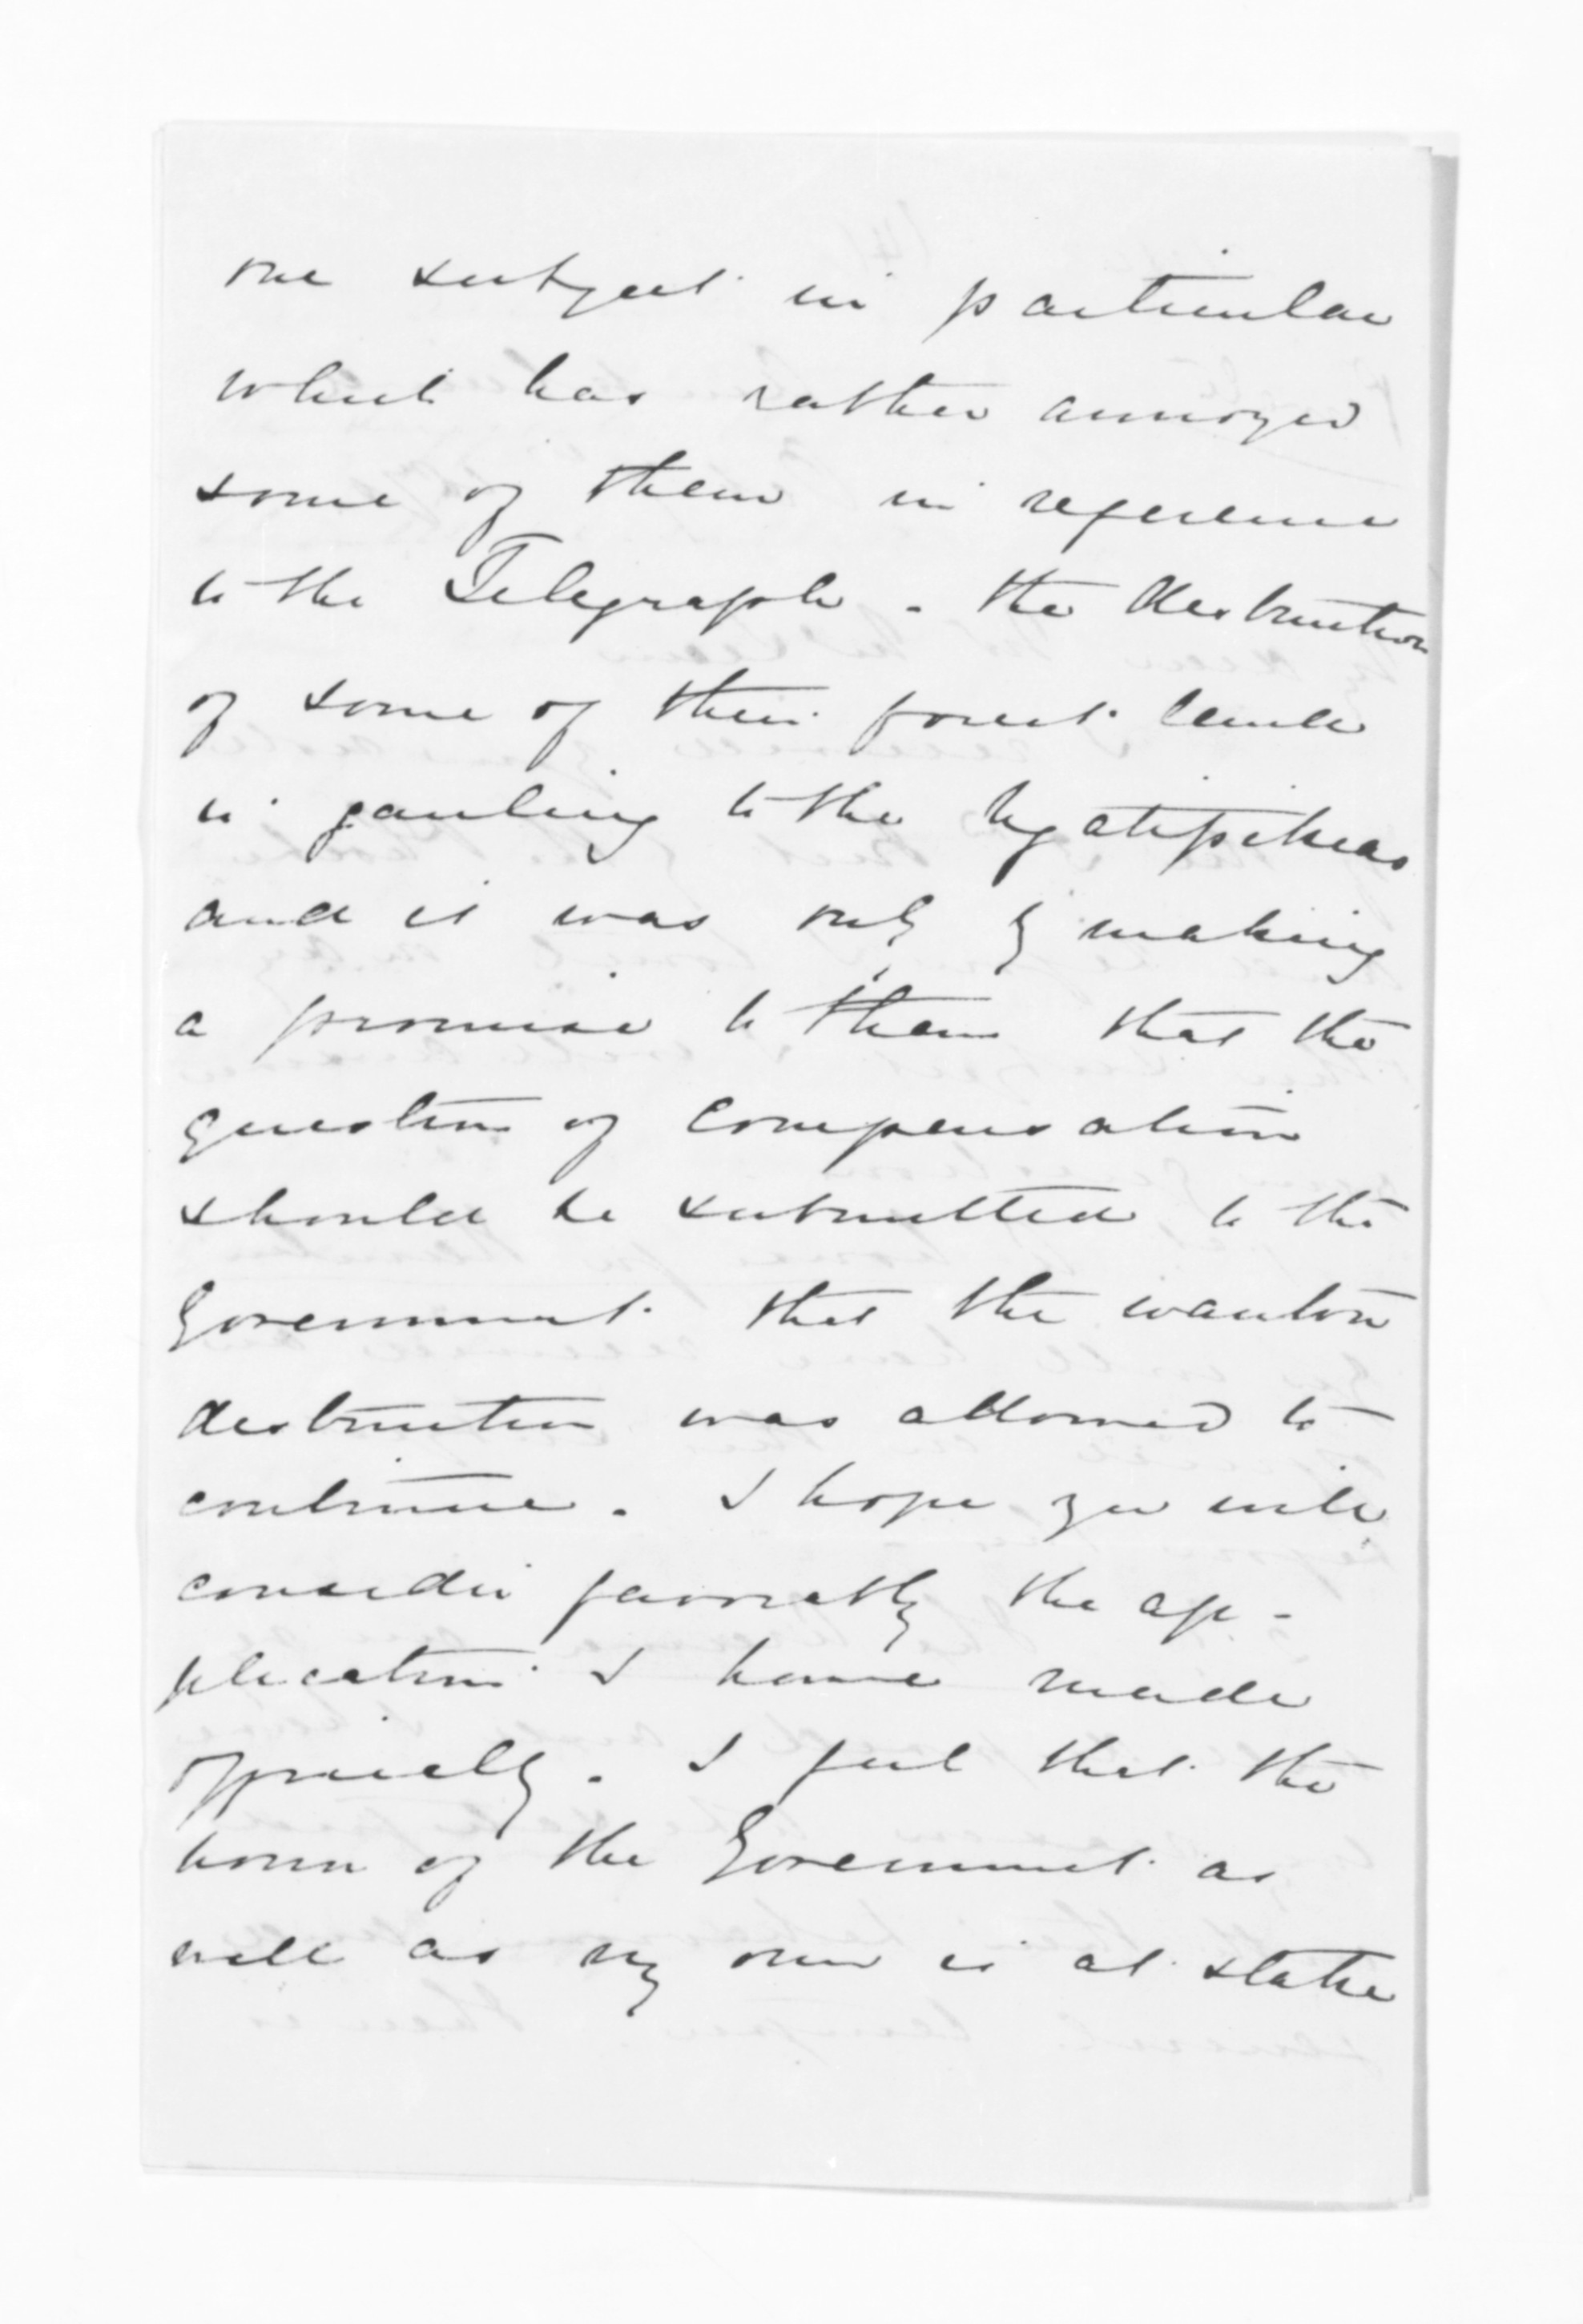 one subject in particular
which has rather annoyed
some of them in reference
to the Telegraph - the destruction
of some of their forest land
in to the Ngatipikiao
and it was only by making
a promise to them that the
question of compensation
should be submitted to the
Government that the wanton
destruction was allowed to
continue. I hope you will
consider favorably the ap-
plication I have made
officially. I feel that the
honor of the Government as
well as my own is at stake